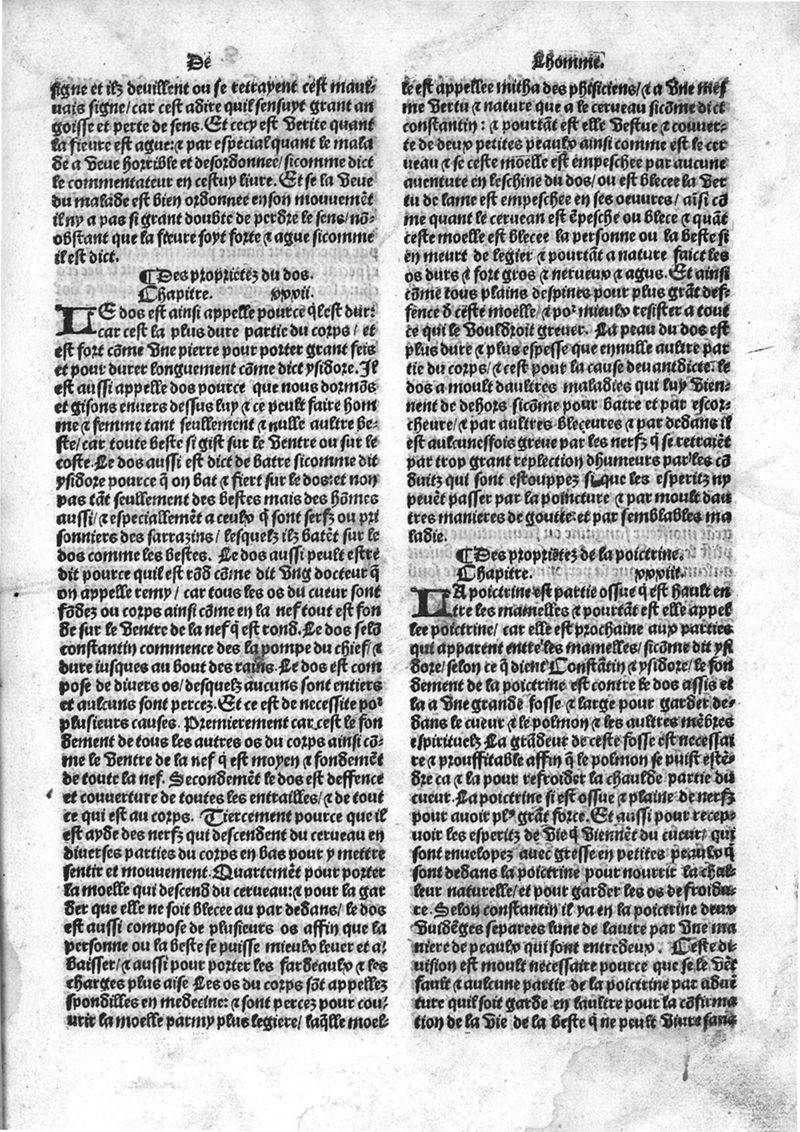 De
Lhomme.
signe et ilz deuillent ou se retrayent cest maul-
uais signe/ car cest adire quil sensuyt grant an
goisse et perte de sens. Et cecy est verite quant
la fieure est ague: ⁊ par especial quant le mala
de a veue horrible et desordonnee/ sicomme dict
le commentateur en cestuy liure. Et se la veue
du malade est bien ordonnee en son mouuemēt
il ny a pas si grant doubte de perdre le sens/ nō-
obstant que la fieure soyt forte ⁊ ague sicomme
il est dict.
¶ Des proprietez du dos.
¶ Chapitre. xxxii.
LE dos est ainsi appelle pource q̄lest dur:
car cest la plus dure partie du corps/ et
est fort cōme vne pierre pour porter grant feis
et pour durer longuement cōme dict ysidore. Il
est aussi appelle dos pource que nous dormōs
et gisons enuers dessus luy ⁊ ce peult faire hom
me ⁊ femme tant seullement ⁊ nulle aultre be-
ste/ car toute beste si gist sur le ventre ou sur le
coste. Le dos aussi est dict de batre sicomme dit
ysidore pource q̄ on bat ⁊ fiert sur le dos: et non
pas tāt seullement des bestes mais des hōmes
aussi/ ⁊ especiallemēt a ceulx q̄ sont serfz ou pri
sonniers des sarrazins/ lesquelz ilz batēt sur le
dos comme les bestes. Le dos aussi peult estre
dit pource quil est rōd cōme dit vng docteur q̄
on appelle remy/ car tous les os du cueur sont
fōdez ou corps ainsi cōme en la nef tout est fon
de sur le ventre de la nef q̄ est rond. Le dos selō
constantin commence des la pompe du chief/ ⁊
dure iusques au bout des rains. Le dos est com
pose de diuers os/ desquelz aucuns sont entiers
et aulcuns sont percez. Et ce est de necessite po²
plusieurs causes. Premierement car cest le fon
dement de tous les autres os du corps ainsi cō-
me le ventre de la nef q̄ est moyen ⁊ fondemēt
de toute la nef. Secondemēt le dos est deffence
et couuerture de toutes les entrailles/ ⁊ de tout
ce qui est au corps. Tiercement pource que il
est ayde des nerfz qui descendent du cerueau en
diuerses parties du corps en bas pour y mettre
sentir et mouuement. Quartemēt pour porter
la moelle qui descend du cerueau: ⁊ pour la gar
der que elle ne soit blecee au par dedans/ le dos
est aussi compose de plusieurs os affin que la
personne ou la beste se puisse mieulx leuer et a/
baisser/ ⁊ aussi pour porter les fardeaulx ⁊ les
charges plus aise Les os du corps sōt appellez
spondilles en medecine: ⁊ sont percez pour cou/
urir la moelle parmy plus legiere/ laq̄lle moel-
le est appellee mitha des phisiciens/ ⁊ a vne mes
me vertu ⁊ nature que a le cerueau sicōme dict
constantin: ⁊ pourtāt est elle vestue ⁊ couuer-
te de deux petites peaulx ainsi comme est le cer
ueau ⁊ se ceste moelle est empeschee par aucune
auenture en leschine du dos/ ou est blecee la ver
tu de lame est empeschee en ses oeuures/ aīsi cō
me quant le cerueau est ēpesche ou blece ⁊ quāt
ceste moelle est blecee la personne ou la beste si
en meurt de legier ⁊ pourtāt a nature faict les
os durs ⁊ fort gros ⁊ nerueux ⁊ agus. Et ainsi
cōme tous plains despines pour plus grāt def-
fence d̄ ceste moelle/ ⁊ po² mieulx resister a tout
ce qui le vouldroit greuer. La peau du dos est
plus dure ⁊ plus espesse que en nulle aultre par
tie du corps/ ⁊ cest pour la cause deuandicte. le
dos a moult daultres maladies qui luy vien-
nent de dehors sicōme pour batre et par escor-
cheure/ ⁊ par aultres bleceures ⁊ par dedans il
est aulcunessois greue par les nerfz q̄ se retraiēt
par trop grant replection dhumeurs par les cō
duitz qui sont estouppez si que les esperitz ny
peuēt passer par la poincture ⁊ par moult dau
tres manieres de goutte et par semblables ma
ladie.
¶ Des proprietez de la poictrine.
¶ Chapitre. xxxiii.
LA poictrine est partie ossue q̄ est hault en
tre les mamelles ⁊ pourtāt est elle appel
lee poictrine/ car elle est prochaine aux parties
qui apparent entre les mamelles/ sicōme dit ysi
dore/ selon ce q̄ dient Constātin ⁊ ysidore/ le fon
dement de la poictrine est contre le dos assis et
la a vne grande fosse ⁊ large pour garder de-
dans le cueur ⁊ le polmon ⁊ les aultres mēbres
espirituelz La grādeur de ceste fosse est necessai
re ⁊ prouffitable affin q̄ le polmon se puist estē-
dre ca ⁊ la pour refroider la chaulde partie du
cueur. La poictrine si est ossue ⁊ plaine de nerfz
pour auoir pl⁹ grāt force. Et aussi pour recep-
uoir les esperitz de vie q̄ viennēt du cueur/ qui
sont enuelopez auec gresse en petites peaulx q̄
sont dedans la poictrine pour nourrir la cha-
leur naturelle/ et pour garder les os de froidu-
re. Selon constantin il ya en la poictrine deux
vuidēges separees lune de lautre par vne ma
niere de peaulx qui sont entredeux. Ceste di-
uision est moult necessaire pource que se le vēt
fault ⁊ aulcune partie de la poictrine par aduē
ture quil soit garde en laultre pour la cōfirma
tion de la vie de la beste q̄ ne peult viure sans